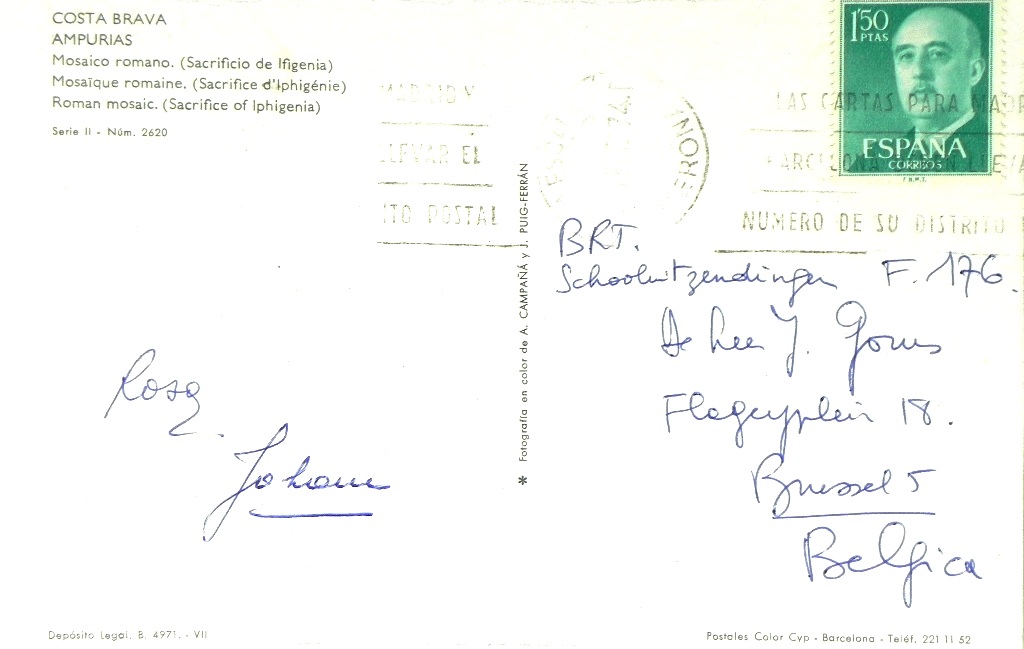 COSTA BRAVA
AMPURIAS
Mosaico romano. (Sacrificio de Ifigenia)
Mosaïque romaine. (Sacrifice d'Iphigénie)
Roman mosaic. (Sacrifice of Iphigenia)
Serie II - Núm. 2620
MADRID Y
LLEVAR EL
ITO POSTAL
1'50
PTAS
ESPAÑA
CORREOS
F.N.M.T.
LAS CARTAS PARA MADR
BARCELONA DEBEN LLEVA
NUMERO DE SU DISTRITO
* Fotografía en color de A. CAMPAÑÁ y J. PUIG-FERRÁN
BRT.
Schooluitzendingen F. 176.
De heer J. Gorus
Flageyplein 18.
Brussel 5
Belgica
Rosa.
Johan
Depósito Legal, B. 4971. - VII
Postales Color Cyp - Barcelona - Teléf. 221 11 52